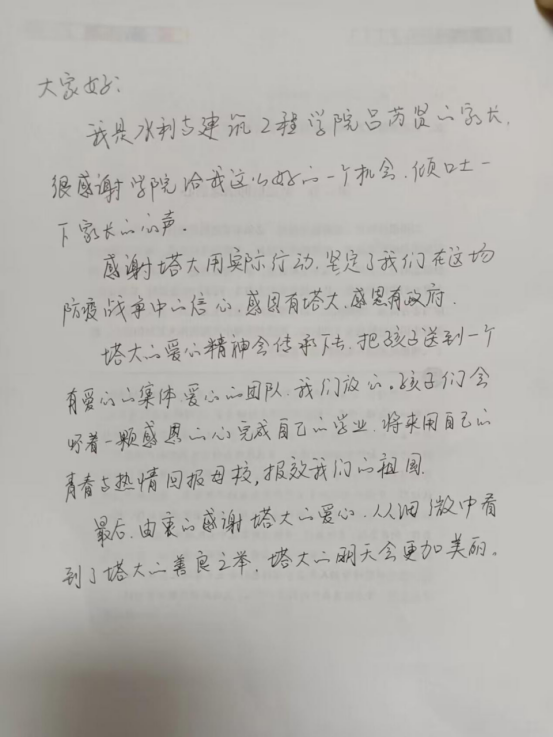 大家好:
我是水利与建筑工程学院吕芮贤的家长,
很感谢学院给我这么好的一个机会.倾吐一
下家长的心声.
感谢塔大用实际行动.坚定了我们在这场
防疫战争中的信心.感恩有塔大.感恩有政府.
塔大的爱心精神会传承下去.把孩子送到一个
有爱心的集体爱心的团队.我们放心。孩子们会
怀着一颗感恩的心完成自己的学业.将来用自己的
青春与热情回报母校,报效我们的祖国.
最后.由衷的感谢塔大的爱心.从细微中看
到了塔大的善良之举.塔大的明天会更加美丽。